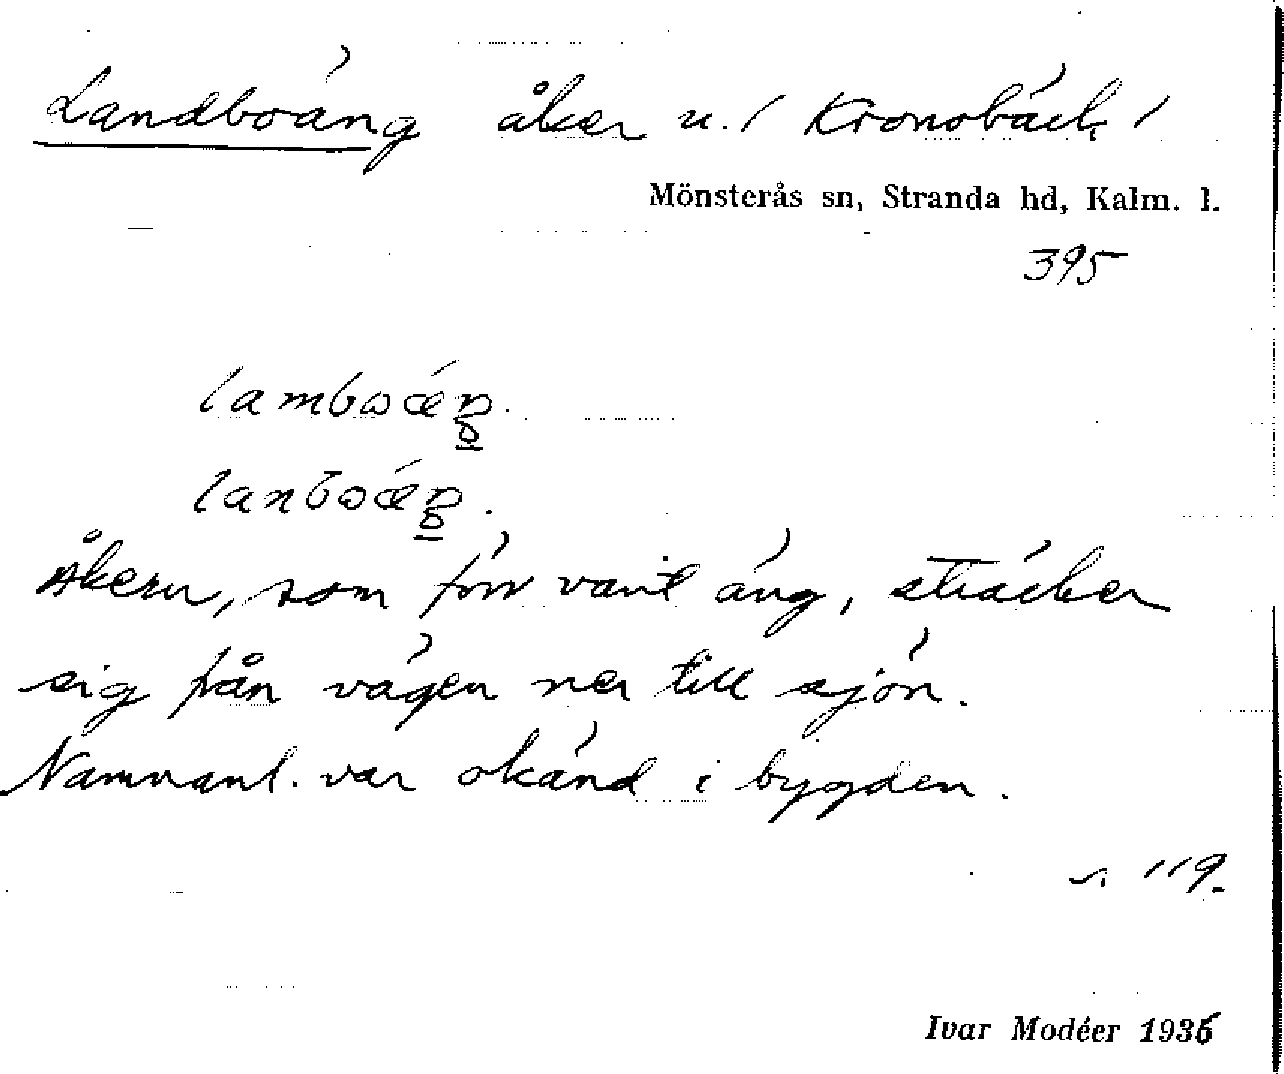 Landboäng åker u. / Kronobäck /
Mönsterås sn, Stranda hd, Kalm. l.
395
Åkern, som förr varit äng, sträcker
sig från vägen ner till sjön.
Namnanl. var okänd i bygden.
s. 119.
Ivar Modéer 1936